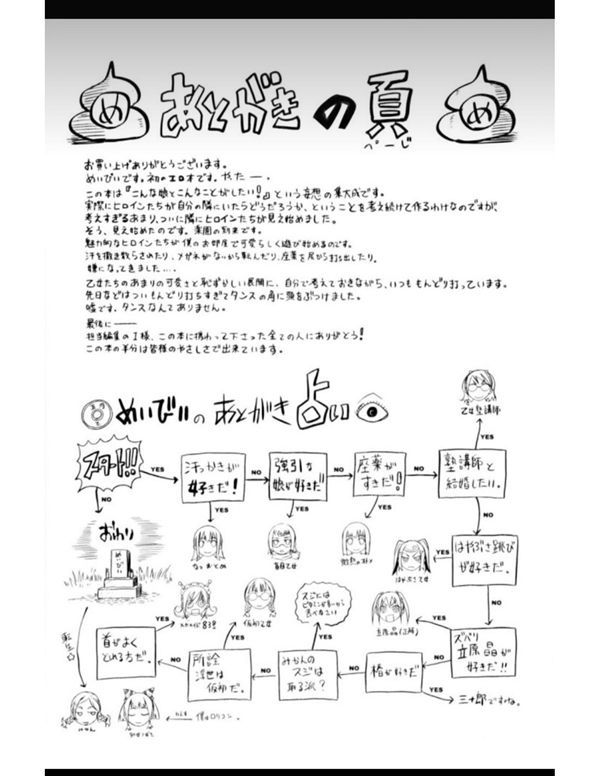 め
あとがきの頁
ぺーじ
め
お買い上げありがとうございます。
めいびいです。初のエロ本です。やたー、
この本は『こんな娘とこんなことがしたい!』という妄想の集大成です。
実際にヒロインたちが自分の隣にいたらどうだろうか、ということを考え続けて作るわけなのですが、
考えすぎるあまり、ついに隣にヒロインたちが見え始めました。
そう、見え始めたのです。楽園の到来です。
魅力的なヒロインたちが僕のお部屋で可愛らしく遊び始めるのです。
汗を撒き散らさめたり、メガネがないから転んだり、座薬を尻から打ち出したり。
嫌になってきました…。
乙女たちのあまりの可愛さと恥ずかしい展開に、自分で考えておきながら、いつももんどり打っています。
先日などはついもんどり打ちすぎてタンスの角に頭をぶつけました。
嘘です。タンスなんてありません。
最後に――
担当編集のI様、この本に携わって下さった全ての人にありがとう!
この本の半分は皆様のやさしさで出来ています。
めいびいのあとがき占い
乙女塾講師
YES
スタート!!!
YES
汗っかきが
好きだ!
NO
強引な
娘が好きだ!!
NO
座薬が
すきだ!
NO
塾講師と
結婚したい。
NO
YES
YES
YES
NO
おわり
めいびい
なつおとめ
盲目乙女
はやぶさ乙女
YES
はやぶさ跳び
が好きだ。
NO
転生
首がよく
とれる方だ。
NO
所詮
浮世は
仮初だ。
YES
仮初乙女
NO
みかんの
スジは
取る派?
YES
スジには
NO
椿が好きだ
NO
ズバリ
立原晶が
好きだ!!
YES
YES
三十郎ですね。
僕はロリコン。